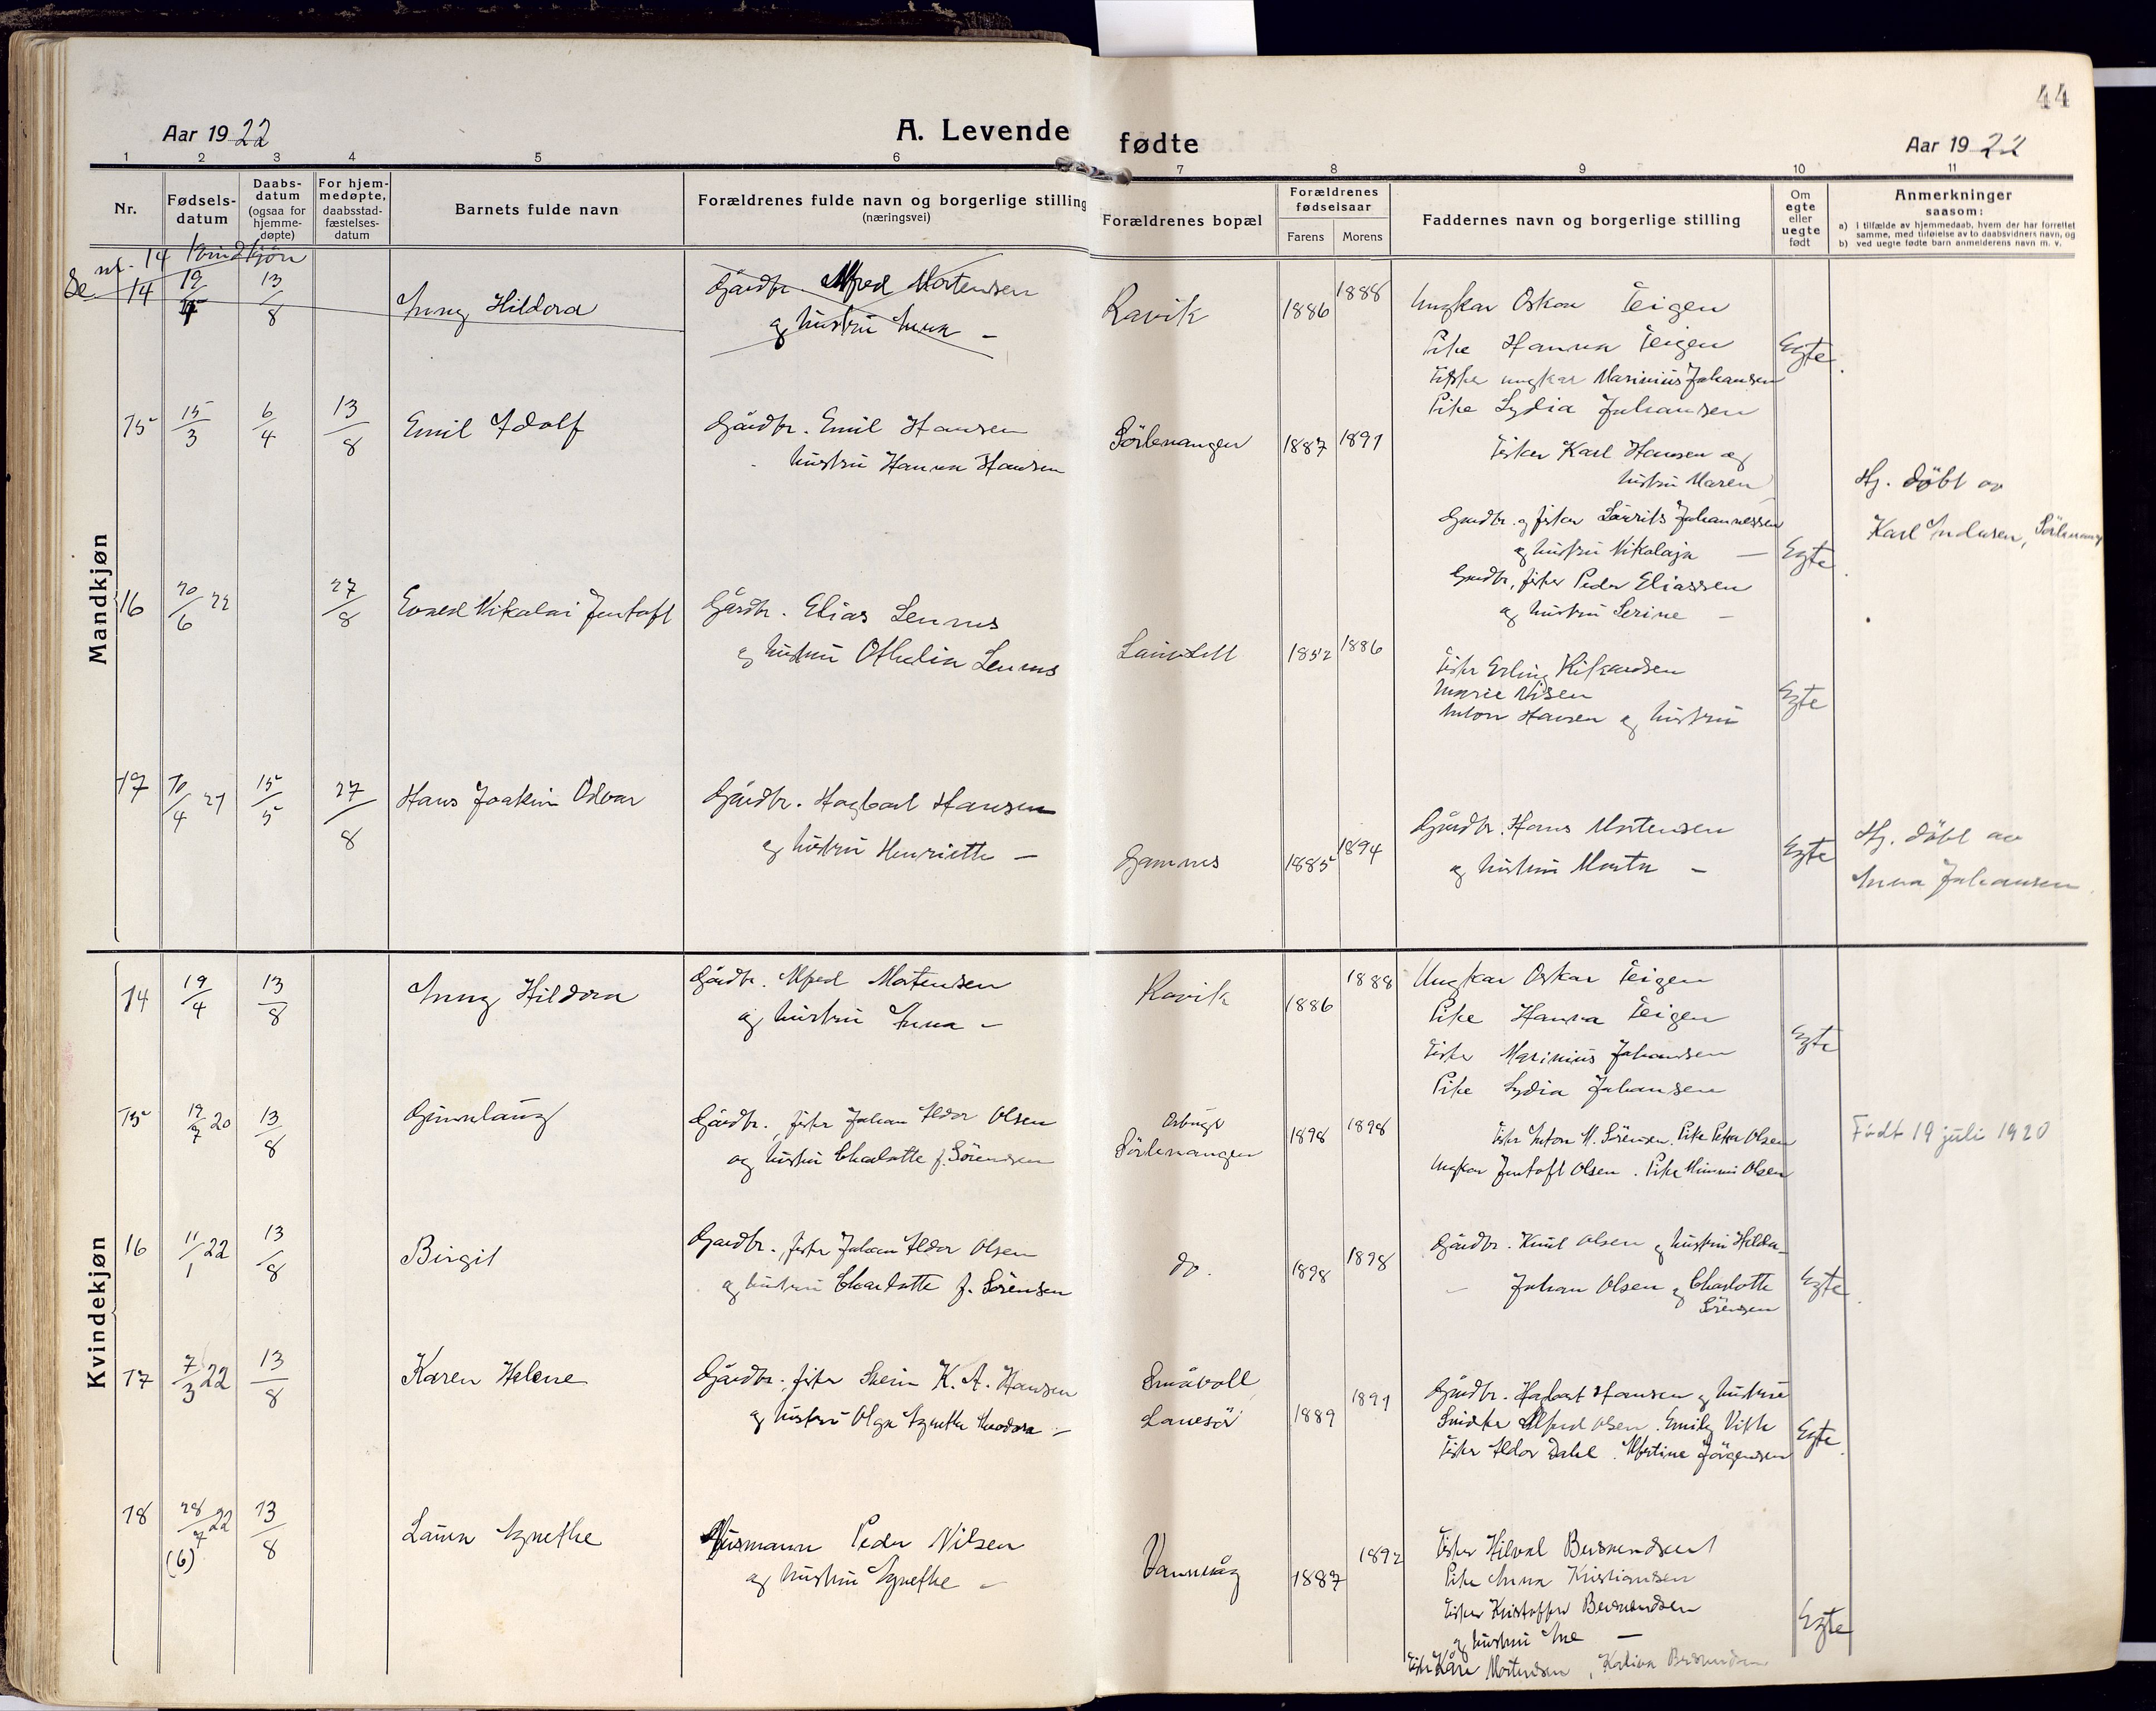 44
Aar 1922
A. Levende fødte
Aar 1922
1 2 3 4 5 6 7 8 9 10 11
Nr.
Fødsels-
datum
Daabs-
datum
(ogsaa for
hjemme-
døpte)
For hjem-
medøpte,
daabsstad-
fæstelses-
datum
Barnets fulde navn
Forældrenes fulde navn og borgerlige stilling
(næringsvei)
Forældrenes bopæl
Forældrenes
fødselsaar
Farens Morens
Faddernes navn og borgerlige stilling
Om
egte
eller
uegte
født
Anmerkninger
saasom:
a) i tilfælde av hjemmedaab, hvem der har forrettet
samme, med tilføielse av to daabsvidners navn, og
b) ved uegte fødte barn anmelderens navn m. v.
Mandkjøn
Se nr. 14 kvindkjøn
14 19/4 13/8 Inny Hildora
Gårdbr. Alfred Mortensen
og hustru Anna –
Ravik 1886 1888
Ungkar Oskar Teigen
Pike Hanna Teigen
Fisker ungkar Marinius Johansen
Pike Lydia Johansen
Egte
15 15/3 6/4 13/8 Emil Adolf
Gårdbr. Emil Hansen
hustru Hanna Hansen
Sörlenangen 1887 1891
Fisker Karl Hansen og
hustru Maren
Gårdbr. og fisker Laurits Johannessen
og hustru Nikolaja –
Gårdbr, fisker Peder Eliassen
og hustru Serine –
Egte
Hj. döbt av
Karl Andersen, Sörlenang
16 20/6 22 27/8 Nikolai Jentoft
Gårdbr. Elias Lennes
og hustru Othelia Lennes
1852 1886
Fisker Erling Rikardsen
Marie Nilsen
Anton Hansen og hustru
Egte
17 10/4 21 15/5 27/8 Hans Joakim Odvar
Gårdbr. Hagbart Hansen
og hustru Henriette –
Gamnes 1885 1894
Gårdbr. Hans Mortensen
og hustru Marta –
Egte
Hj. döbt av
Anna Johansen
Kvindekjøn
14 19/4 13/8 Inny Hildora
Gårdbr. Alfred Mortensen
og hustru Anna –
Ravik 1886 1888
Ungkar Oskar Teigen
Pike Hanna Teigen
Fisker Marinius Johansen
Pike Lydia Johansen
Egte
15 19/7 20 13/8 Gunnlaug
Gårdbr., fisker Johan Aldor Olsen
og hustru Charlotte f. Sörensen
Sörlenangen 1898 1898
Fisker Anton M. Sörensen. Pike Petra Olsen
Ungkar Jentoft Olsen. Pike Mimmi Olsen
Födt 19 juli 1920
16 11/1 22 13/8 Birgit
Gaardbr., fisker Johan Aldor Olsen
og hustru Charlotte f. Sörensen
do. 1898 1898
Gårdbr. Knut Olsen og hustru Hilda –
– Johan Olsen og Charlotte
Sörensen
Egte
17 7/3 22 13/8 Karen Helene
Gårdbr., fisker K. A. Hansen
og hustru Olga Agnethe Theodora –
Småvoll
1889 1891
Gårdbr. Hagbart Hansen og hustru
Alfred Olsen. Emily
Fisker Aldor Dahl. Albertine Jörgensen
Egte
18 28/7 22 (6) 13/8 Laura Agnethe
Husmann Peder Nilsen
og hustru Agnethe –
Vannvåg 1887 1892
Fisker Hilval Berntsen
Pike Anna Kristiansen
Fisker Kristoffer Berntsen
og hustru Ane –
Fisker Kåre Mortensen,
Egte